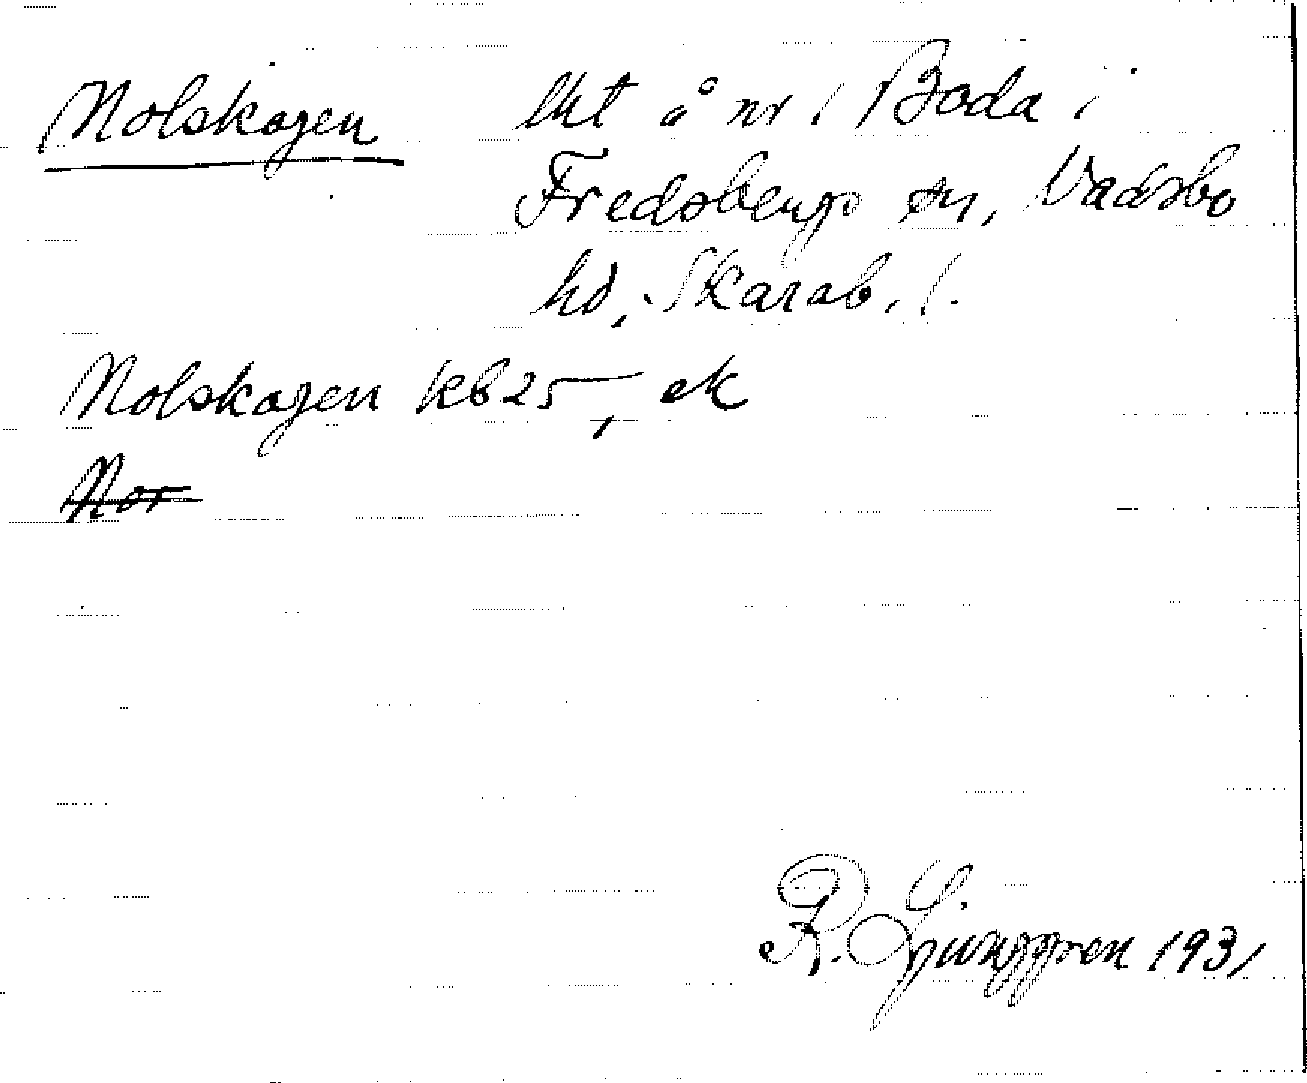 Nolskogen lht å nr 1 Boda i
Fredsbergs sn, Vadsbo
hd, Skarab. l.
Nolskogen kb 25, ek
Nor
R. Ljunggren 1931